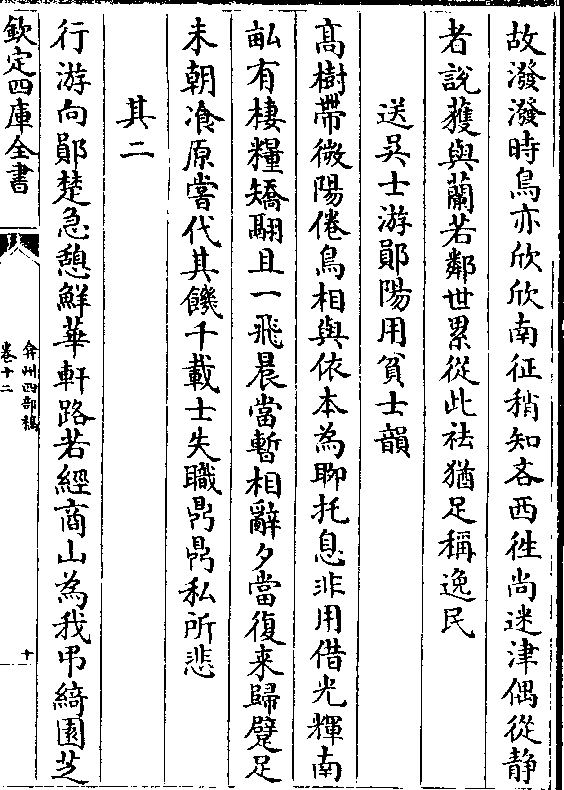 故潑潑時鳥亦欣欣南征稍知吝西徃尚迷津偶從静
者說獲與蘭若鄰世累從此祛猶足稱逸民
送吳士游鄖陽用貧士韻
髙樹帶微陽倦鳥相與依本為聊托息非用借光輝南
畆有棲糧矯翮且一飛晨當暫相辭夕當復来歸躄足
未朝飡原嘗代其饑千載士失職鼎鼎私所悲
其二
行游向鄖楚急憩鮮華軒路若經商山為我弔綺園芝
欽定四庫全書
弇州四部稿
卷十二
十